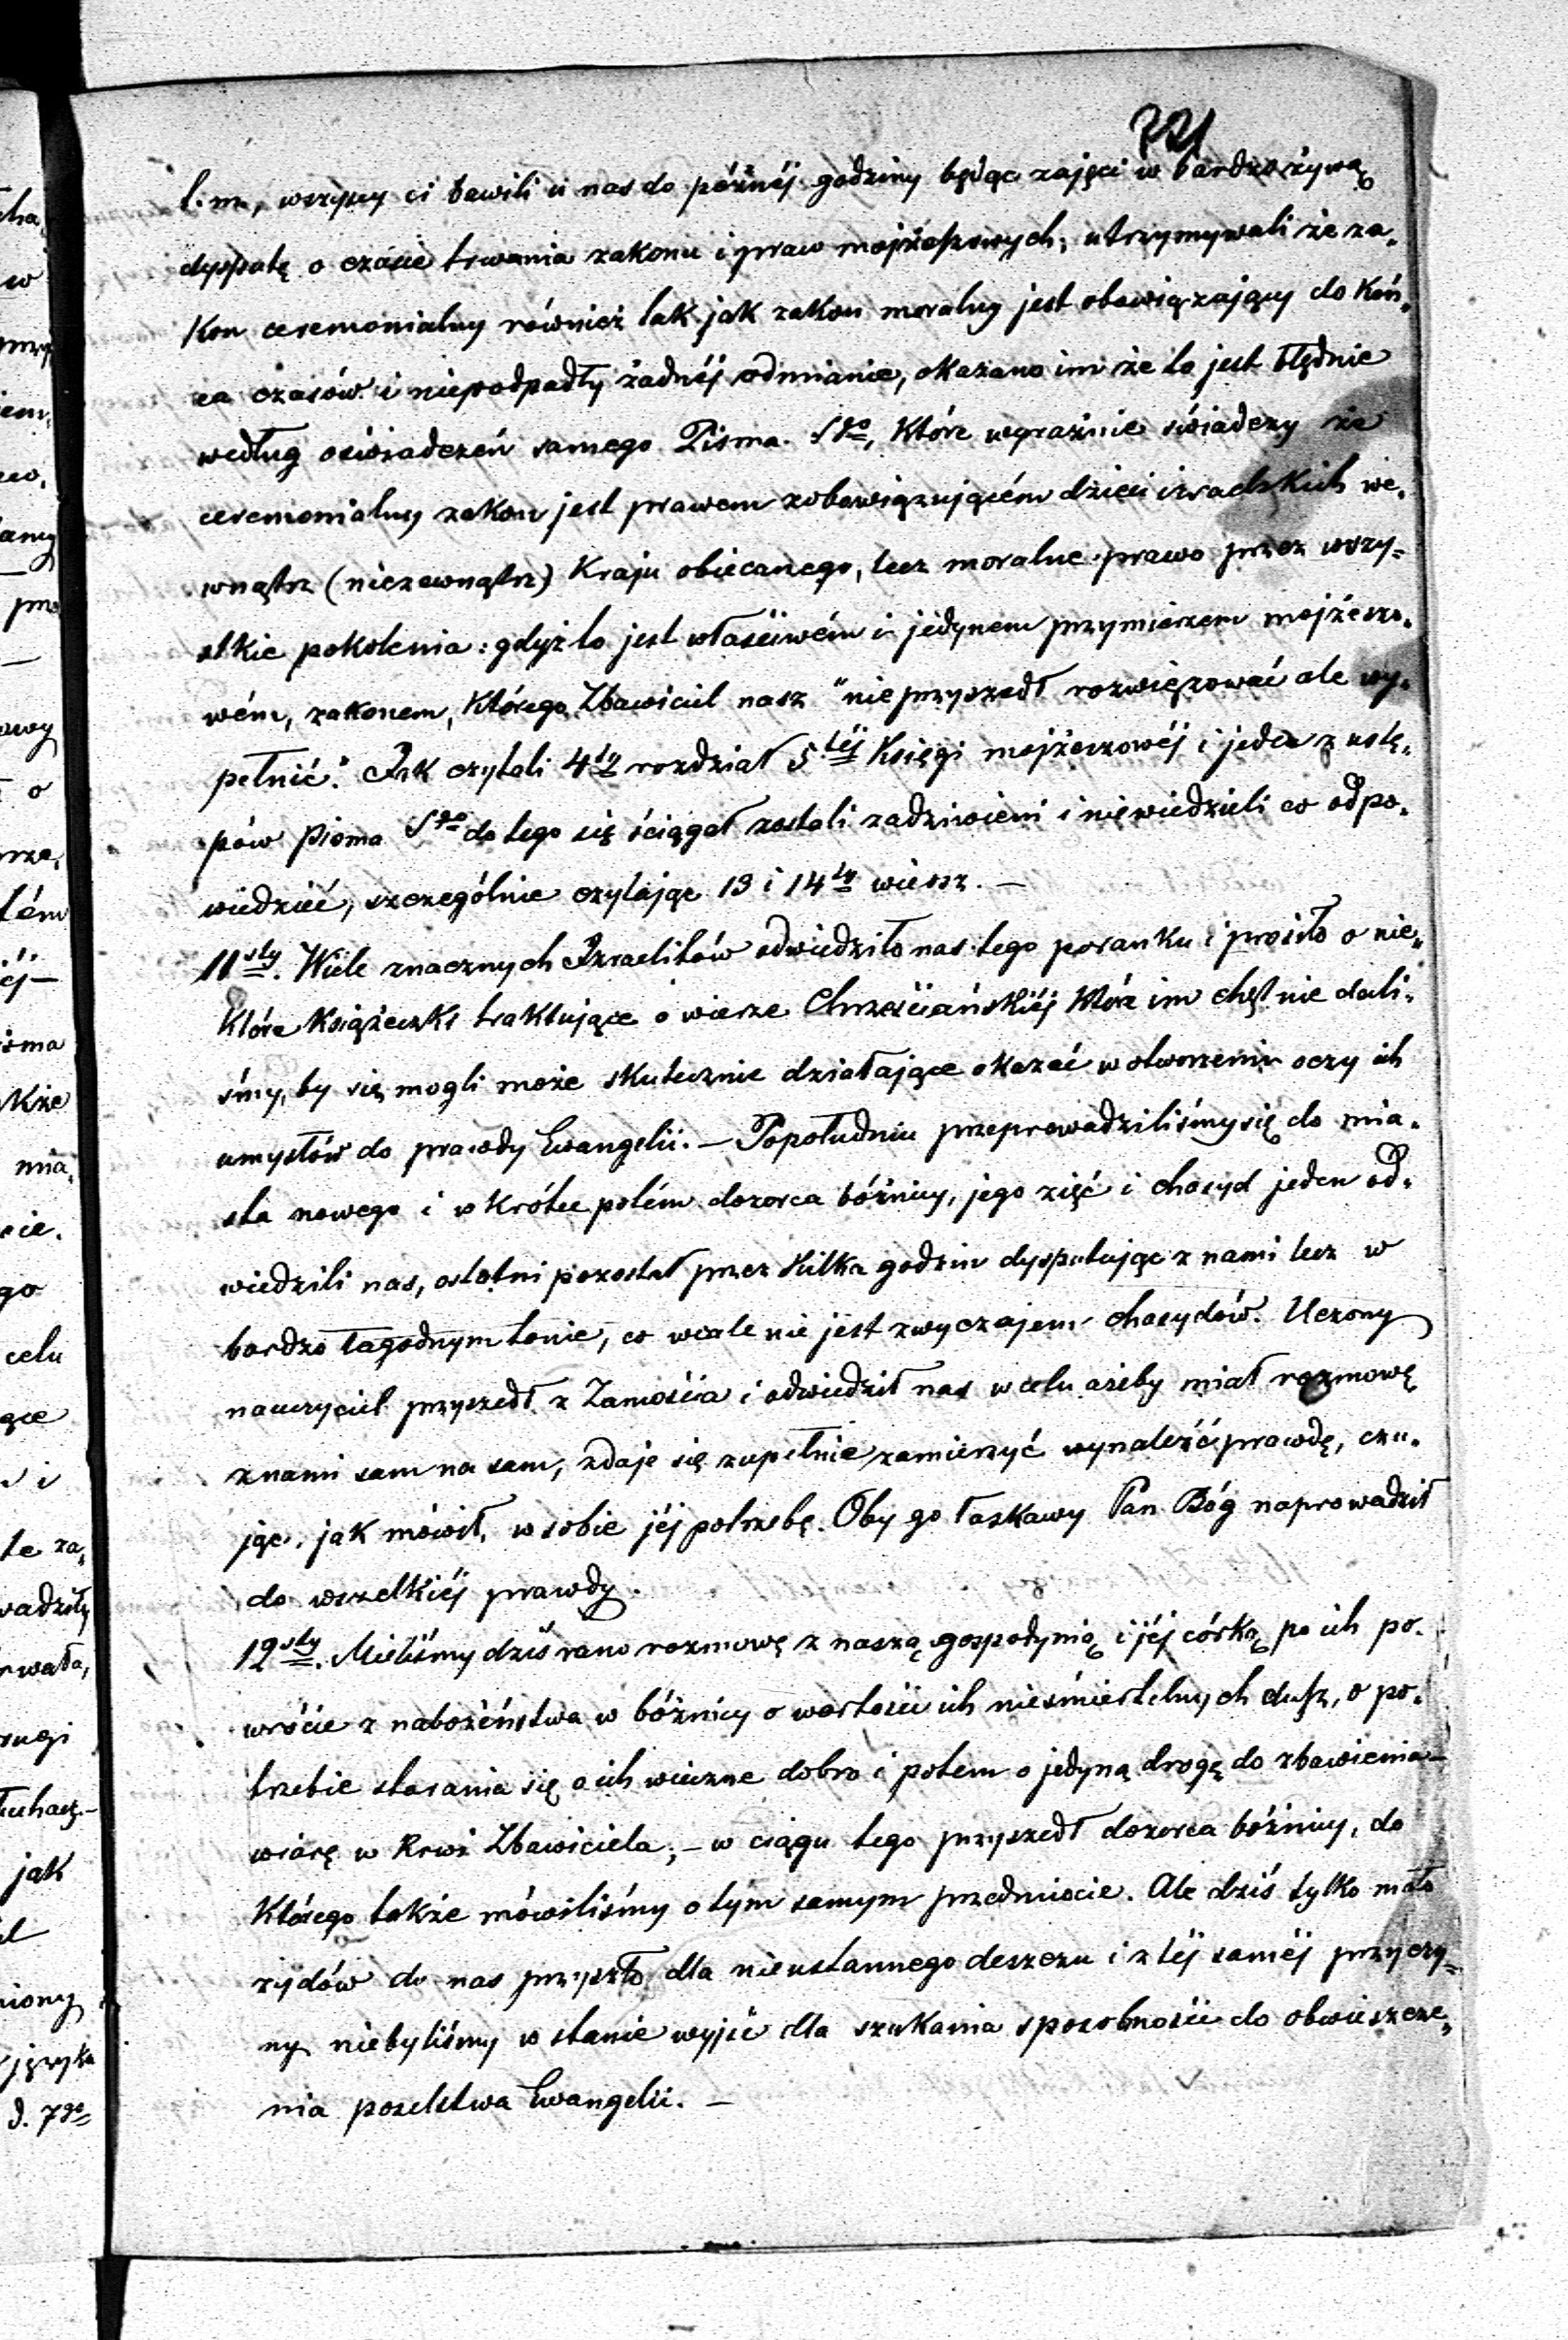 721
t.m., wszyscy ci bawili u nas do późnéj godziny będąc zajęci w bardzo żywą
dysputę o czasie trwania zakonu i praw mojżeszowych, utrzymywali że za„
kon ceremonialny również tak jak zakon moralny jest obowiązający do koń„
ca czasów i niepodpadły żadnéj odmianie, okazano im że to jest błędnie
według oświadczeń samego Pisma Sgo, które wyraźnie świadczy że
ceremonialny zakon jest prawem zobowiązującém dzieci izraelskich we„
wnątrz (niezewnątrz) Kraju obiecanego, lecz moralne prawo przez wszy„
stkie pokolenia: gdyż to jest właściwém i jedynem przymierzem mojżeszo„
wém, zakonem, którego Zbawiciel nasz "nieprzyszedł rozwięzować ale wy„
pełnić." Jak czytali 4ty rozdział 5téj Księgi mojżeszowéj i jeden z ustę„
pów Pisma Sgo do tego się ściągał zostali zadziwieni i niewiedzieli co odpo„
wiedzieć, szczególnie czytając 13 i 14ty wiersz. —
11sty. Wiele znacznych Izraelitów odwiedziło nas tego poranku i prosiło o nie„
które książeczki traktujące o wierze Chrześciańskiéj które im chętnie dali„
śmy, by się mogli może skutecznie działające okazać w otworzeniu oczy ich
umysłów do prawdy Ewangelii. — Popołudniu przeprowadziliśmy się do mia„
sta nowego i w krótce potém dozorca bóżnicy, jego zięć i chasyd jeden od„
wiedzili nas, ostatni pozostał przez kilka godzin dysputując z nami lecz w
bardzo łagodnym tonie, co wcale nie jest zwyczajem chasydów. Uczony
nauczyciel przyszedł z Zamościa i odwiedził nas w celu ażeby miał rozmowę
znami sam na sam, zdaje się zupełnie zamierzyć wynaleźć prawdę, czu„
jąc, jak mówił, w sobie jéj potrzebę. Oby go łaskawy Pan Bóg naprowadził
do wszelkiéj prawdy.
12sty. Mieliśmy dziś rano rozmowę z naszą gospodynią i jéj córką po ich po„
wrócie z nabożeństwa w bóżnicy o wartości ich nieśmiertelnych dusz, o po„
trzebie starania się o ich wieczne dobro i potem o jedyną drogę do zbawienia —
wiarę w Krwi Zbawiciela; — w ciągu tego przyszedł dozorca bóżnicy, do
którego także mówiliśmy o tym samym przedmiocie. Ale dziś tylko mało
żydów do nas przyszło dla nieustannego deszczu i z téj saméj przyczy„
ny niebyliśmy w stanie wyjść dla szukania sposobności do obwieszcze„
nia poselstwa Ewangelii. —